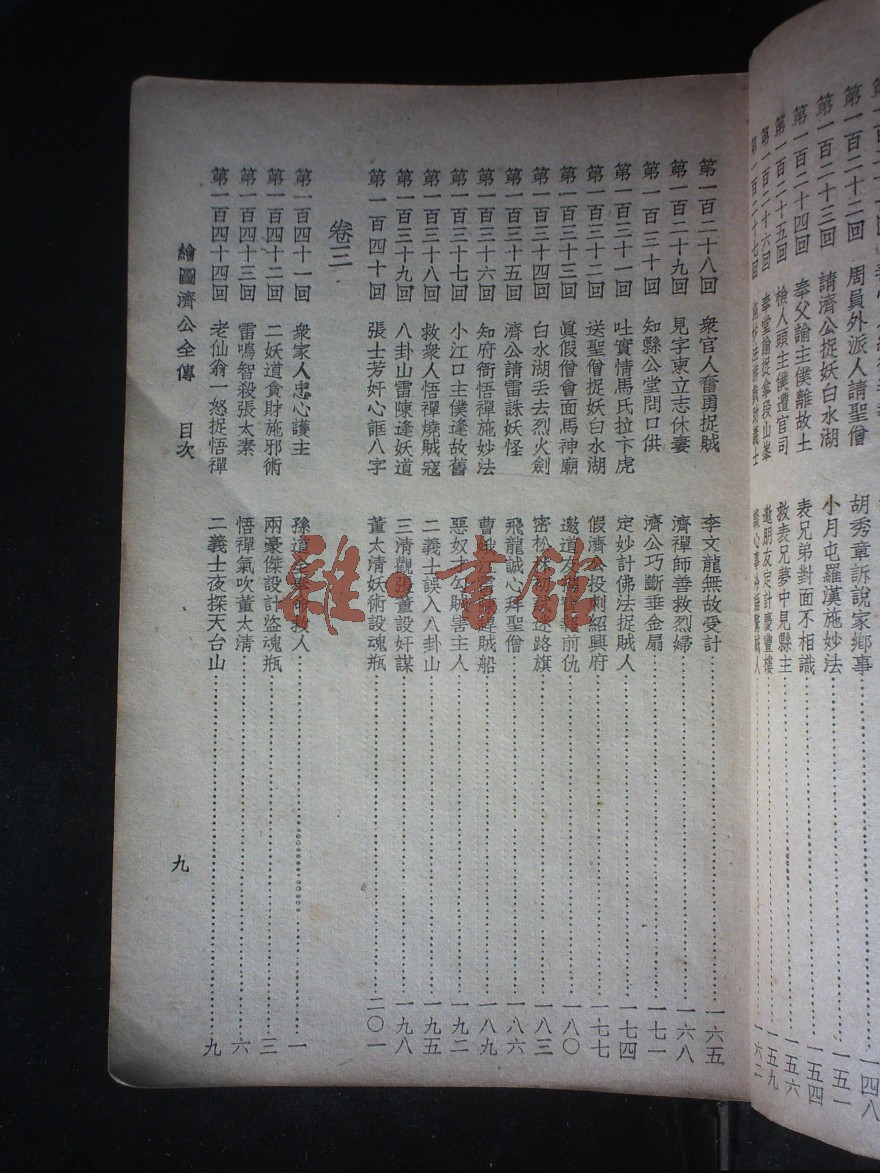 第一百二十二回 周員外派人請聖僧 胡秀章訴說家鄉事 一四八
第一百二十三回 請濟公捉妖白水湖 小月屯羅漢施妙法 一五一
第一百二十四回 奉父諭主僕離故土 表兄弟對面不相識 一五四
第一百二十五回 檢人頭主僕遭官司 救表兄夢中見縣主 一五六
第一百二十六回 奉堂諭捉拿段山峯 邀朋友定計慶豐樓 一五九
第一百二十七回 一六二
第一百二十八回 衆官人奮勇捉賊 李文龍無故受計 一六五
第一百二十九回 見字柬立志休妻 濟禪師善救烈婦 一六八
第一百三十回 知縣公堂問口供 濟公巧斷垂金扇 一七一
第一百三十一回 吐實情馬氏拉卞虎 定妙計佛法捉賊人 一七四
第一百三十二回 送聖僧捉妖白水湖 假濟公投刺紹興府 一七七
第一百三十三回 眞假僧會面馬神廟 邀道友 前仇 一八〇
第一百三十四回 白水湖丟去烈火劍 密松林 迷路旗 一八三
第一百三十五回 濟公請雷誅妖怪 飛龍誠心拜聖僧 一八六
第一百三十六回 知府衙悟禪施妙法 曹娥江 賊船 一八九
第一百三十七回 小江口主僕逢故舊 惡奴才勾賊害主人 一九二
第一百三十八回 救衆人悟禪燒賊寇 二義士誤入八卦山 一九五
第一百三十九回 八卦山雷陳逢妖道 三清觀張董設奸謀 一九八
第一百四十回 張士芳奸心誆八字 董太淸妖術設魂瓶 二〇一
卷三
第一百四十一回 衆家人忠心護主 孫道全 救人 一
第一百四十二回 二妖道貪財施邪術 兩豪傑設計盜魂瓶 三
第一百四十三回 雷鳴智殺張太素 悟禪氣吹董太淸 六
第一百四十四回 老仙翁一怒捉悟禪 二義士夜探天台山 九
繪圖濟公全傳 目次 九
雜·書館